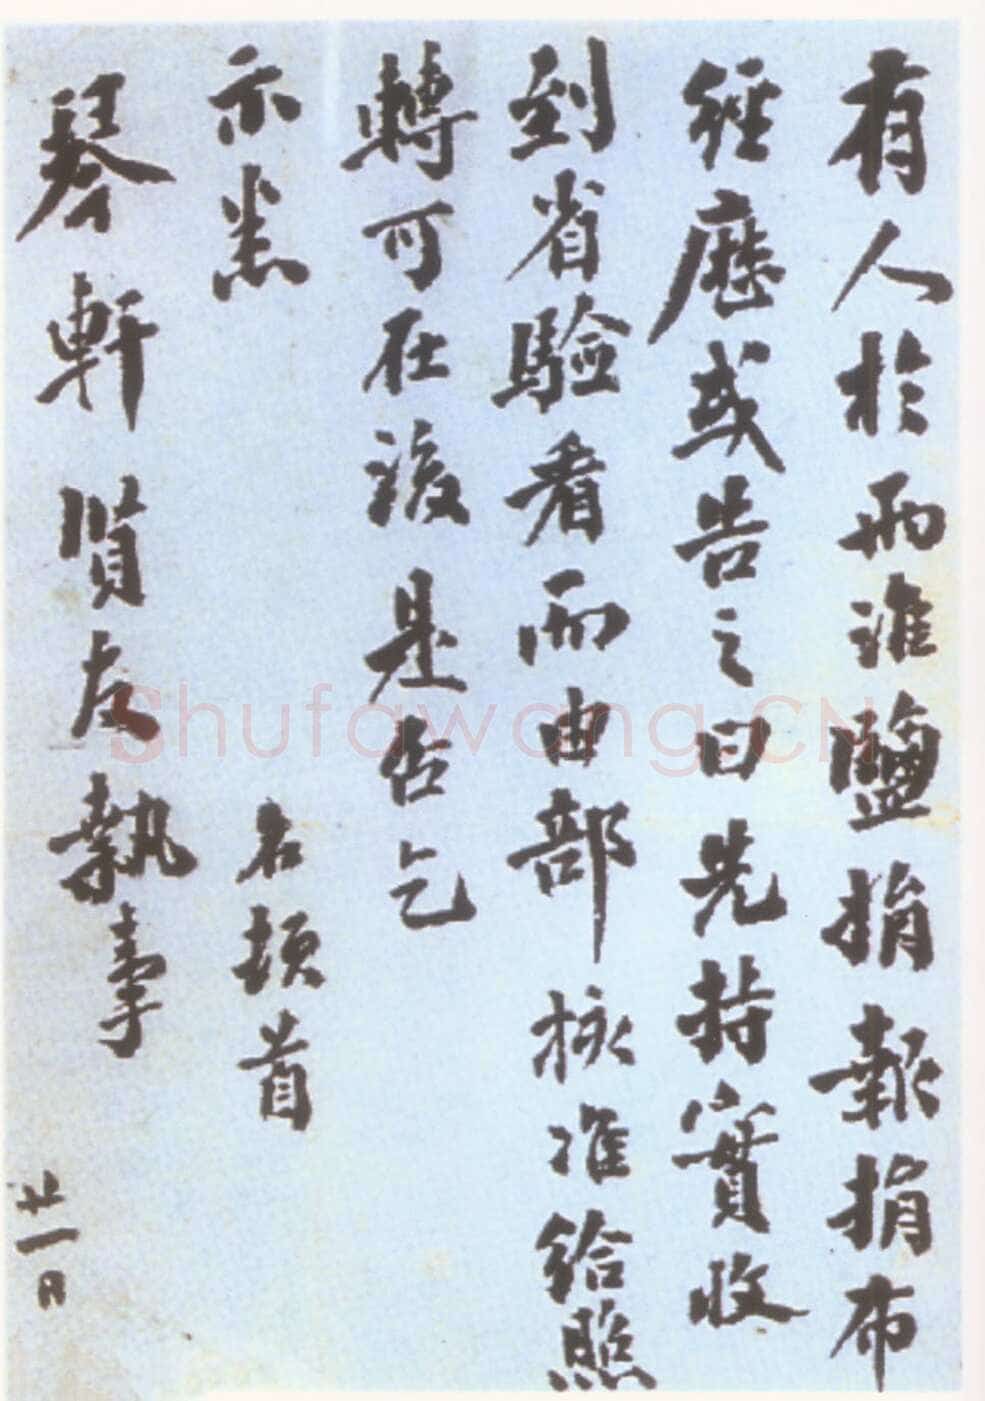 有人於兩淮鹽捐報捐布
經歷或告之曰先持實收
到省驗看而由部核准給照
轉可在後是否乞
示悉
名頓首
琴軒賢友執事
廿一日
Shufawang.CN